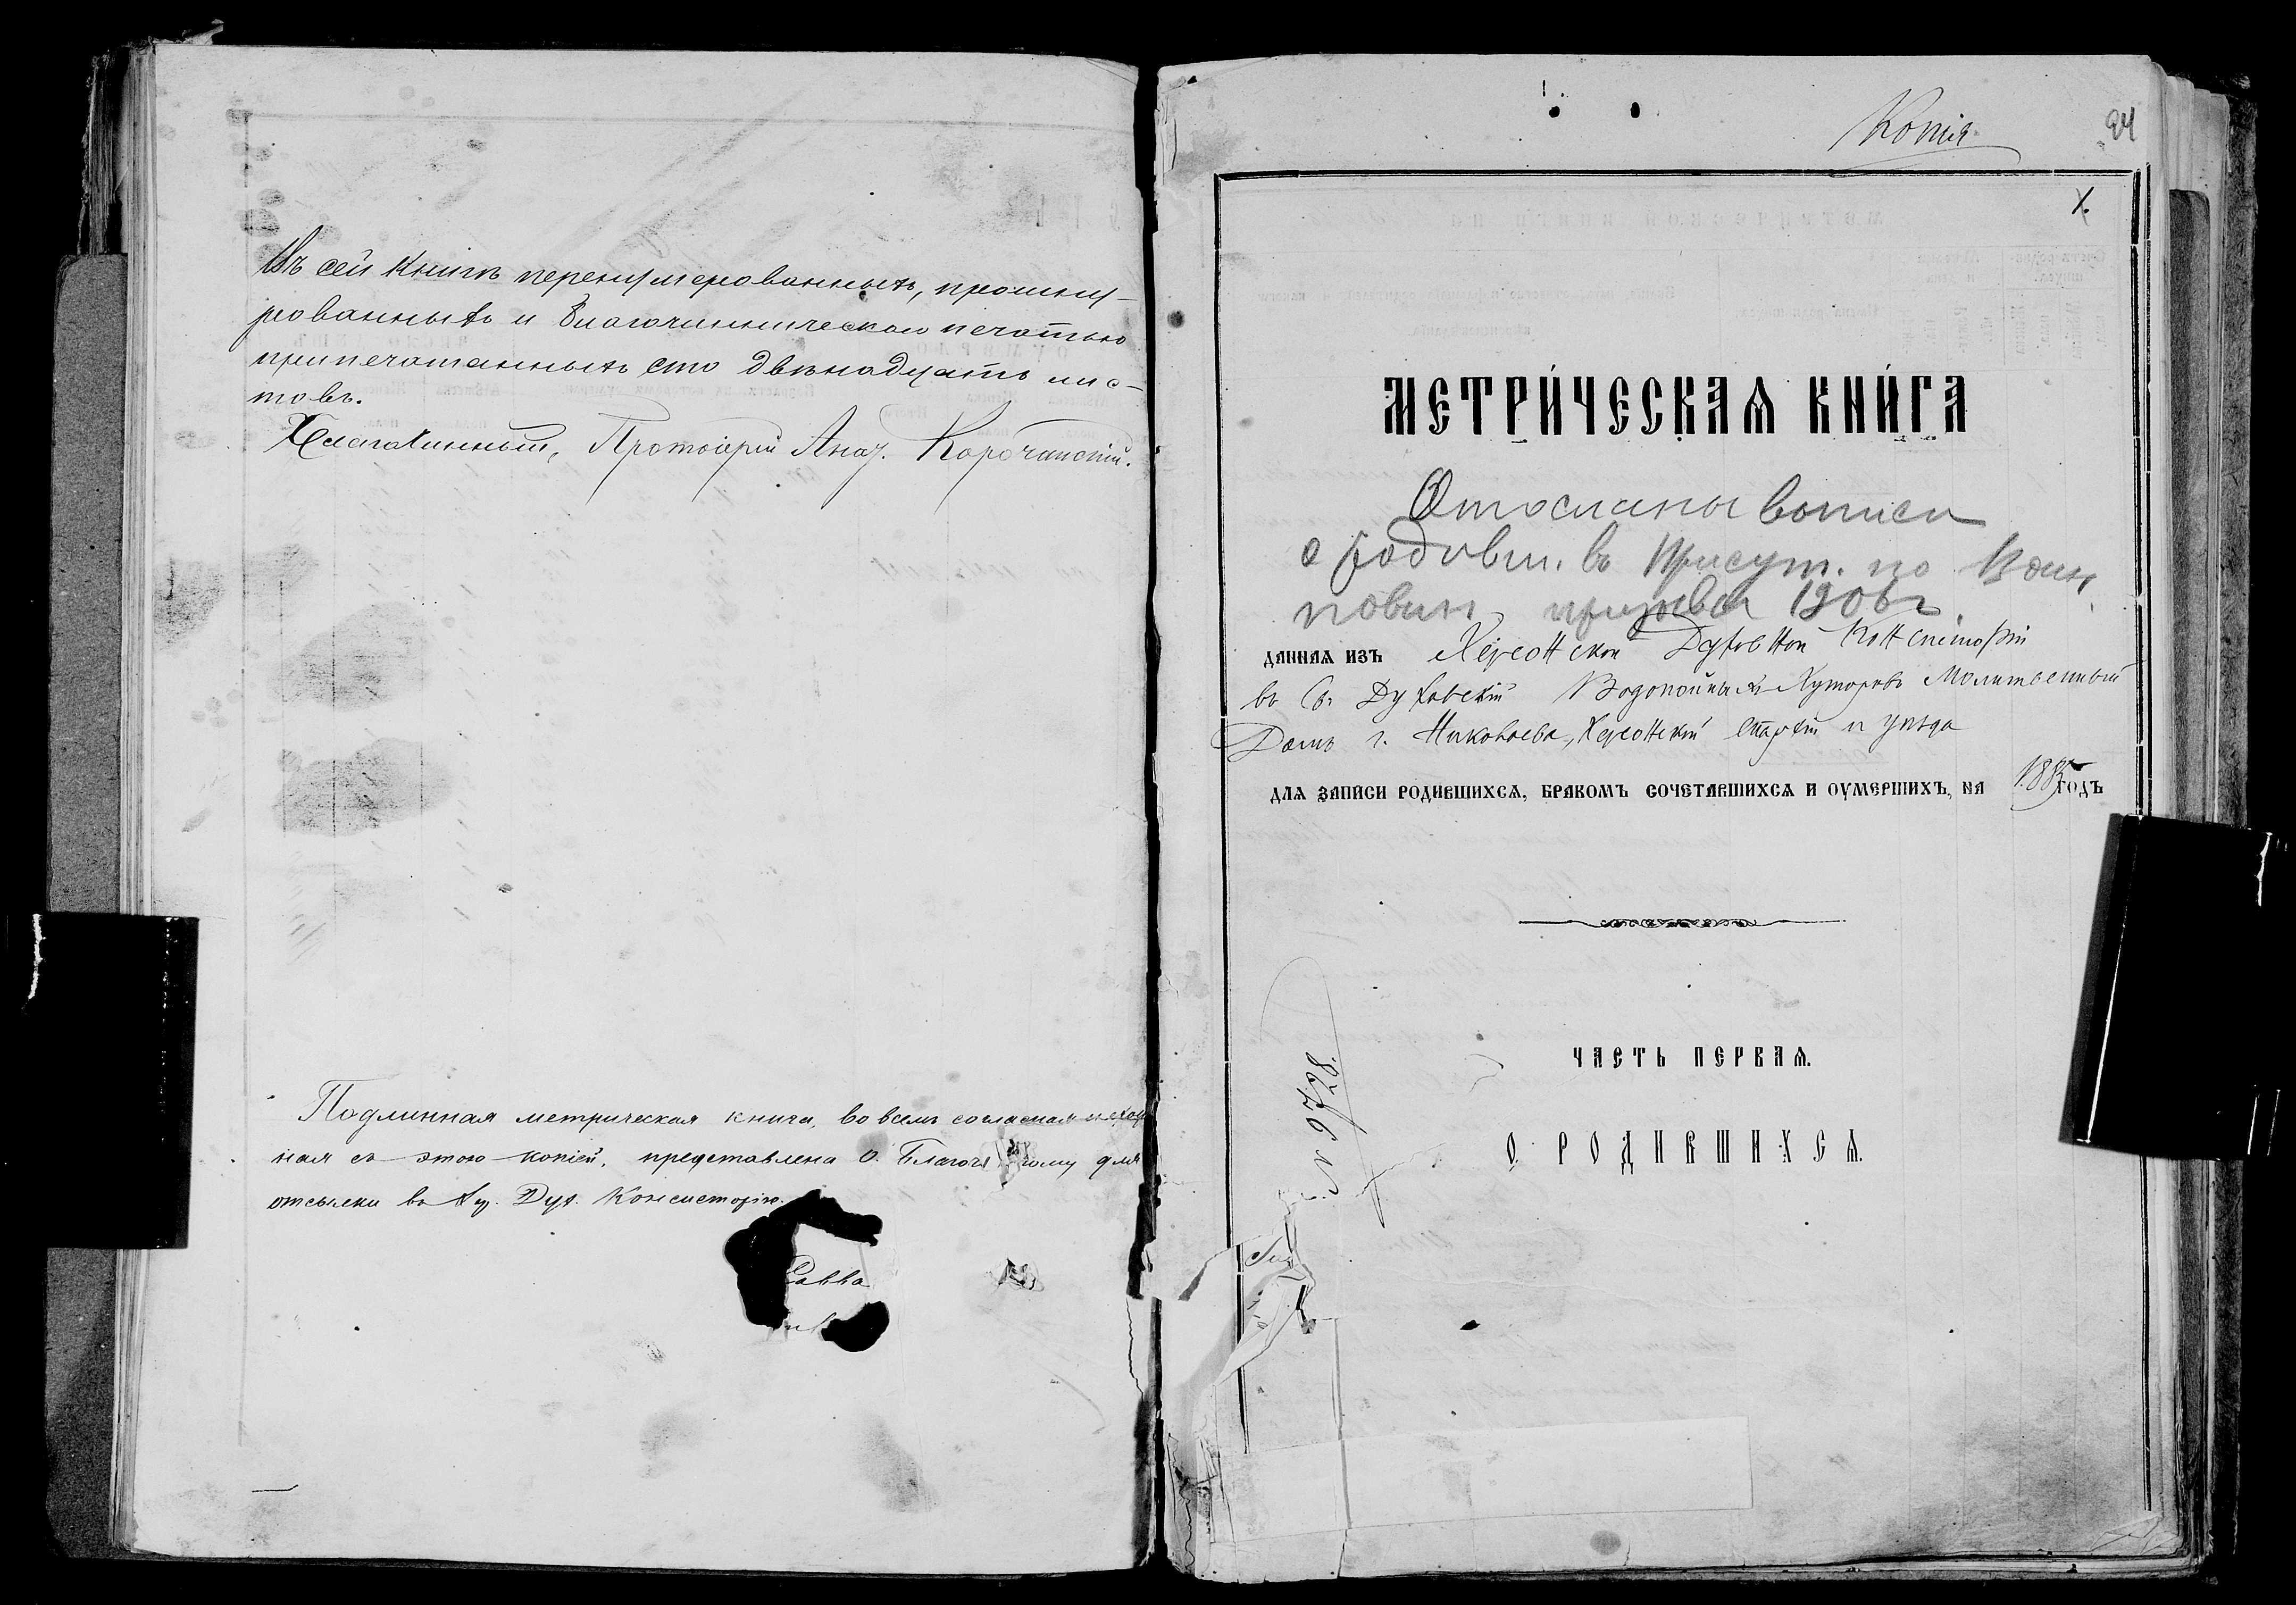 Въ сей книгѣ перенумерованныхъ, прошну-
рованныхъ и благочинническою печатью
припечатанныхъ сто двѣнадцать лис-
товъ.
Благочинный, Протоіерей Анат. Корочанскій.
Подлинная метрическая книга, во всемъ согласная и сход
ная съ этою копіей, представлена О. Благочинному для
отсылки въ Хер. Дух. Консисторію.
Савва
Копія
94
X.
МЕТРИ́ЧЕСКАѦ КНИ́ГА
Отосланы выписи
о родивш. въ Присут. по Воин.
повин. призыва 1906 г.
ДАННАѦ ИЗЪ Херсонской Духовной Консисторіи
въ Св. Духовскій Водопойныхъ Хуторовъ Молитвенный
Домъ г. Николаева, Херсонскій Епархіи и уѣзда
ДЛѦ ЗАПИСИ РОДИВШИХСѦ, БРАКОМЪ СОЧЕТАВШИХСѦ И ОУМЕРШИХЪ, НА 1885 ГОДЪ
ЧАСТЬ ПЕРВАѦ.
О РОДИВШИХСѦ.